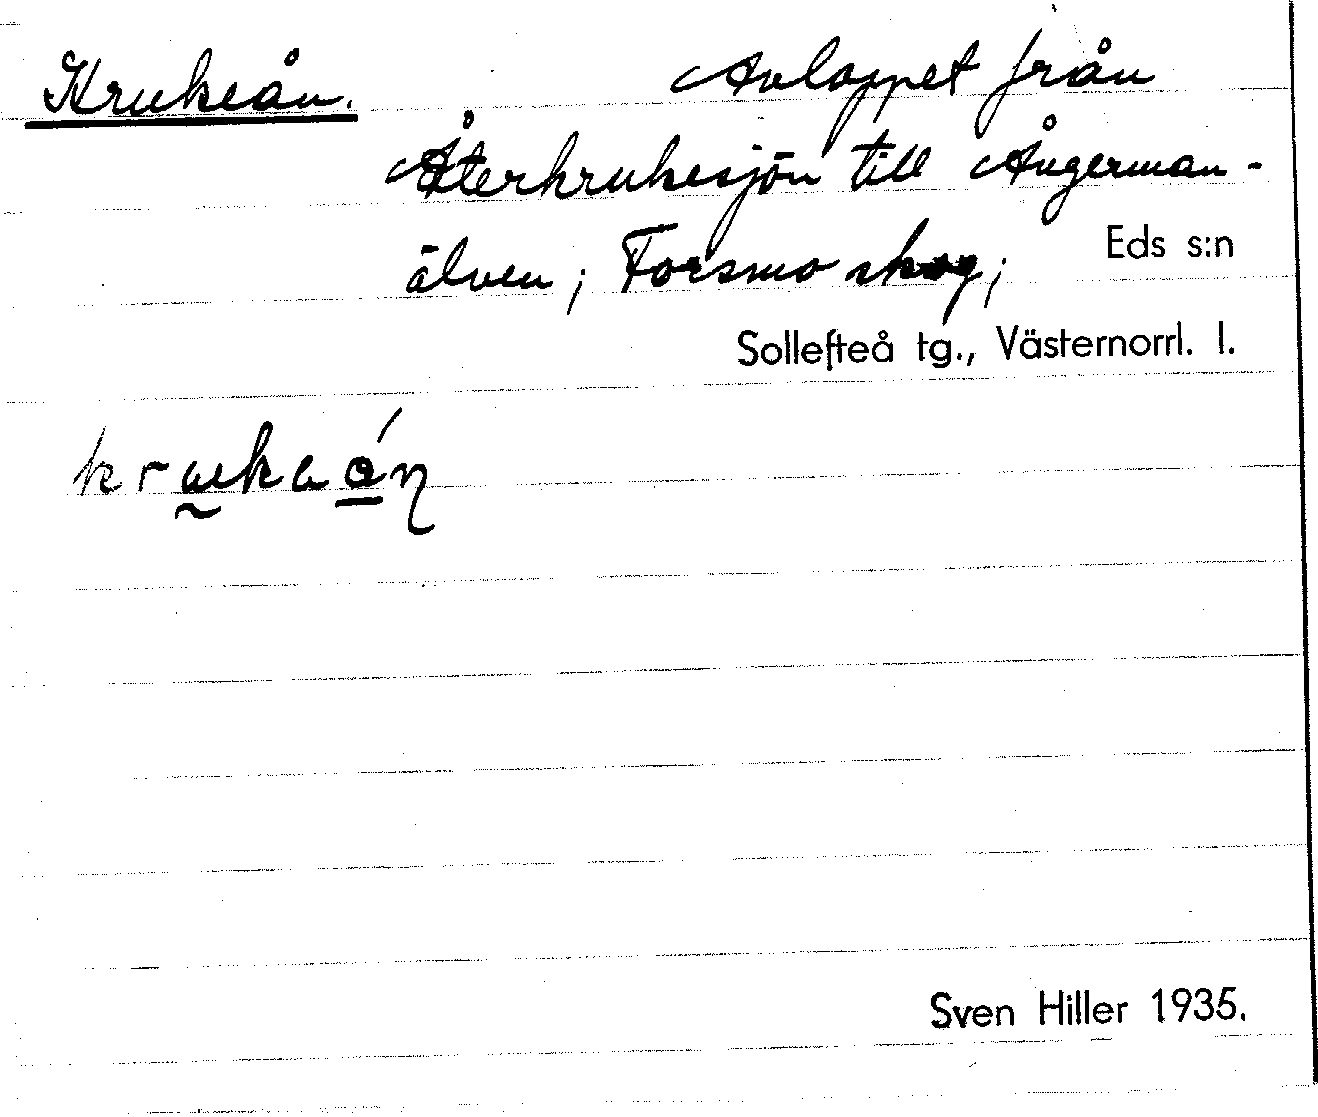 Krukeån. Avloppet från
Återkrukesjön till Ångerman-
älven; Forsmo skog; Eds s:n
Sollefteå tg., Västernorrl. l.
Sven Hiller 1935.